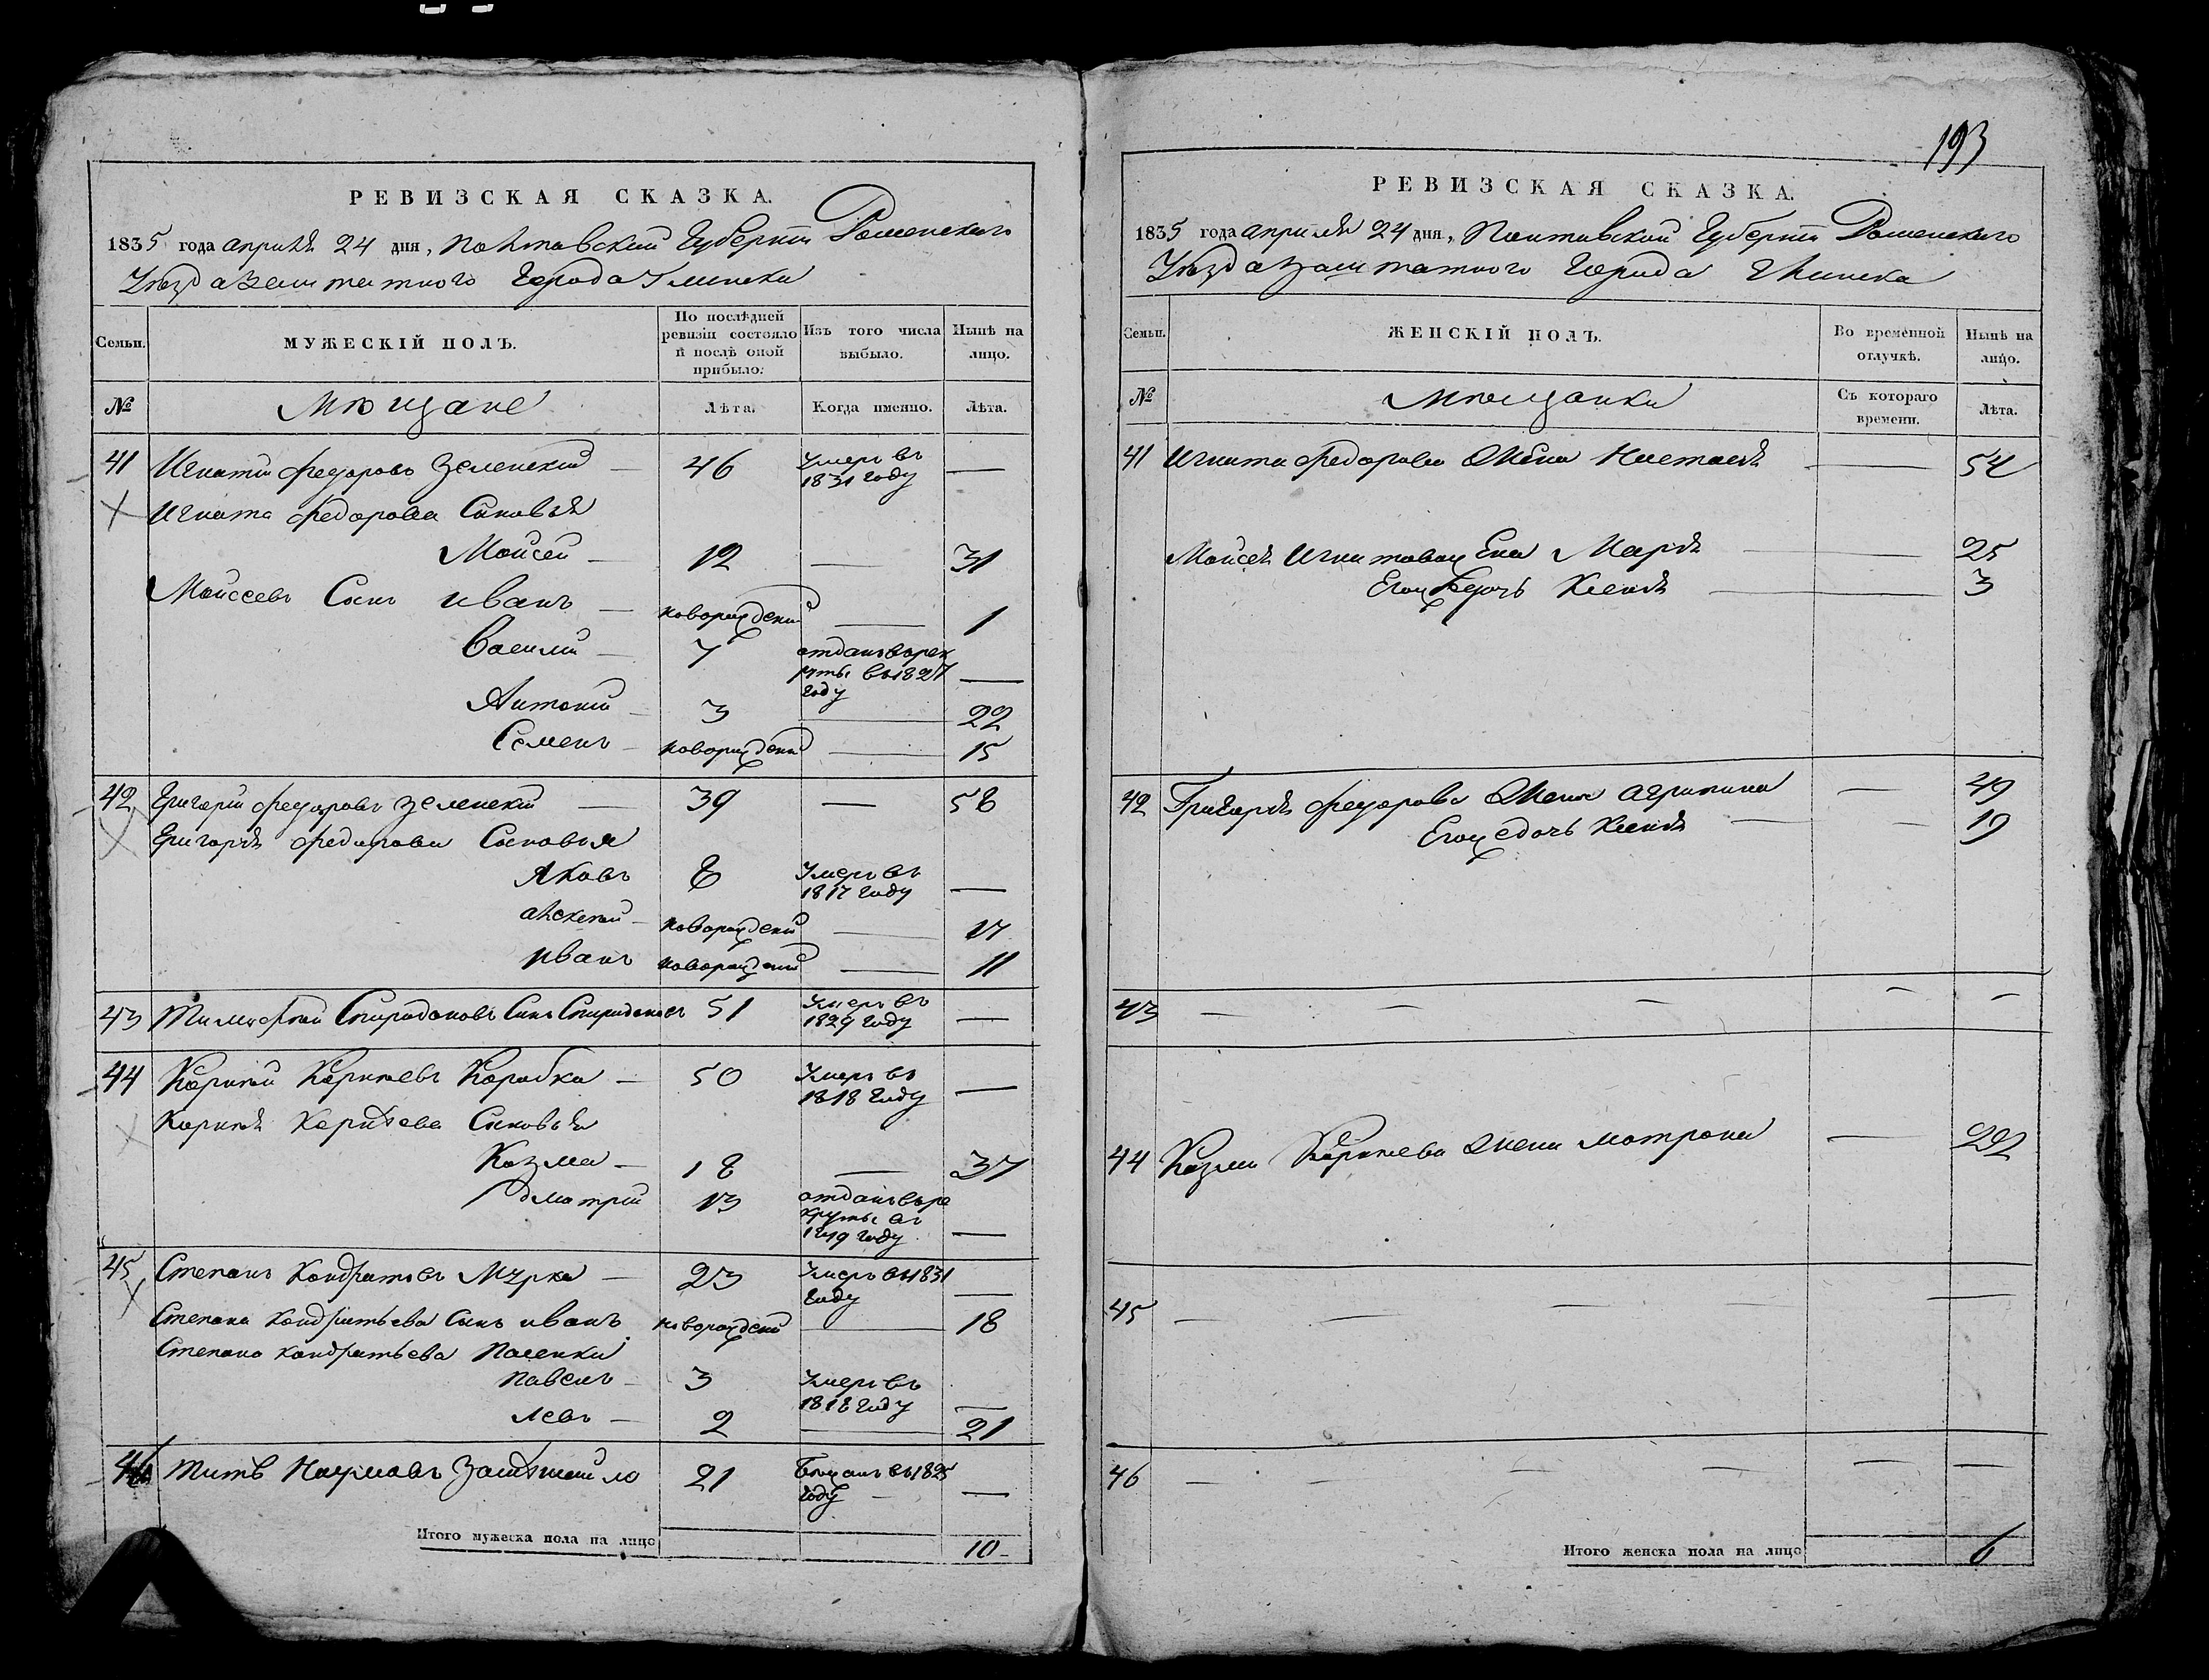 РЕВИЗСКАЯ СКАЗКА.
1835 года апреля 24 дня, Полтавской Губернии Роменского
Уезда заштатного Города Глинска
Семьи. МУЖЕСКІЙ ПОЛЪ. По послѣдней ревизіи состояло и послѣ оной прибыло. Изъ того числа выбыло. Нынѣ на лицо.
№ Мѣщане Лѣта. Когда именно. Лѣта.
41 Игнатий Федоровъ Зеленский — 46 Умеръ въ 1831 году —
Игната Федорова Сыновья
Мойсей — 12 — 31
Мойсеевъ Сынъ Иванъ — новорожденй — 1
Василий — 7 отданъ въ рекруты въ 1827 году —
Антоний — 3 — 22
Семенъ — новорожденй — 15
42 Григорий Федоровъ Зеленский — 39 — 58
Григорія Федорова Сыновья
Яковъ 8 Умеръ въ 1817 году —
Алексей — новорожденй — 17
Иванъ новорожденй — 11
43 Тимофей Спиридоновъ Сынъ Спиридоновъ 51 Умеръ въ 1829 году —
44 Корней Корнеевъ Коробка — 50 Умеръ въ 1818 году —
Корнея Корнеева Сыновья
Козма — 18 — 37
Дмитрий 13 отданъ въ рекруты въ 1819 году —
45 Степанъ Кондратьевъ Мурка — 23 Умеръ въ 1831 году —
Степана Кондратьева Сынъ Иванъ новорожденй — 18
Степана Кондратьева Пасенки
Павелъ — 3 Умеръ въ 1818 году —
Левъ — 2 — 21
46 Титъ Наумовъ 21 въ 1825 году — —
Итого мужеска пола на лицо 10
193
РЕВИЗСКАЯ СКАЗКА.
1835 года апреля 24 дня, Полтавской Губернии Роменского
Уезда заштатного Города Глинска
Семьи. ЖЕНСКІЙ ПОЛЪ. Во временной отлучкѣ. Нынѣ на лицо.
№ Мѣщанки Съ котораго времени. Лѣта.
41 Игната Федорова Жена Настасія — 54
Мойсея Игнатова Жена Марія — 25
Егож дочь Ксенія — 3
42 Григорія Федорова Жена Агрипина — 49
Егож дочь Ксенія — — 19
43 — — — — —
44 Козми Корнеева Жена Матрона — 22
45 — — — — —
46 — — — — — —
Итого женска пола на лицо 6